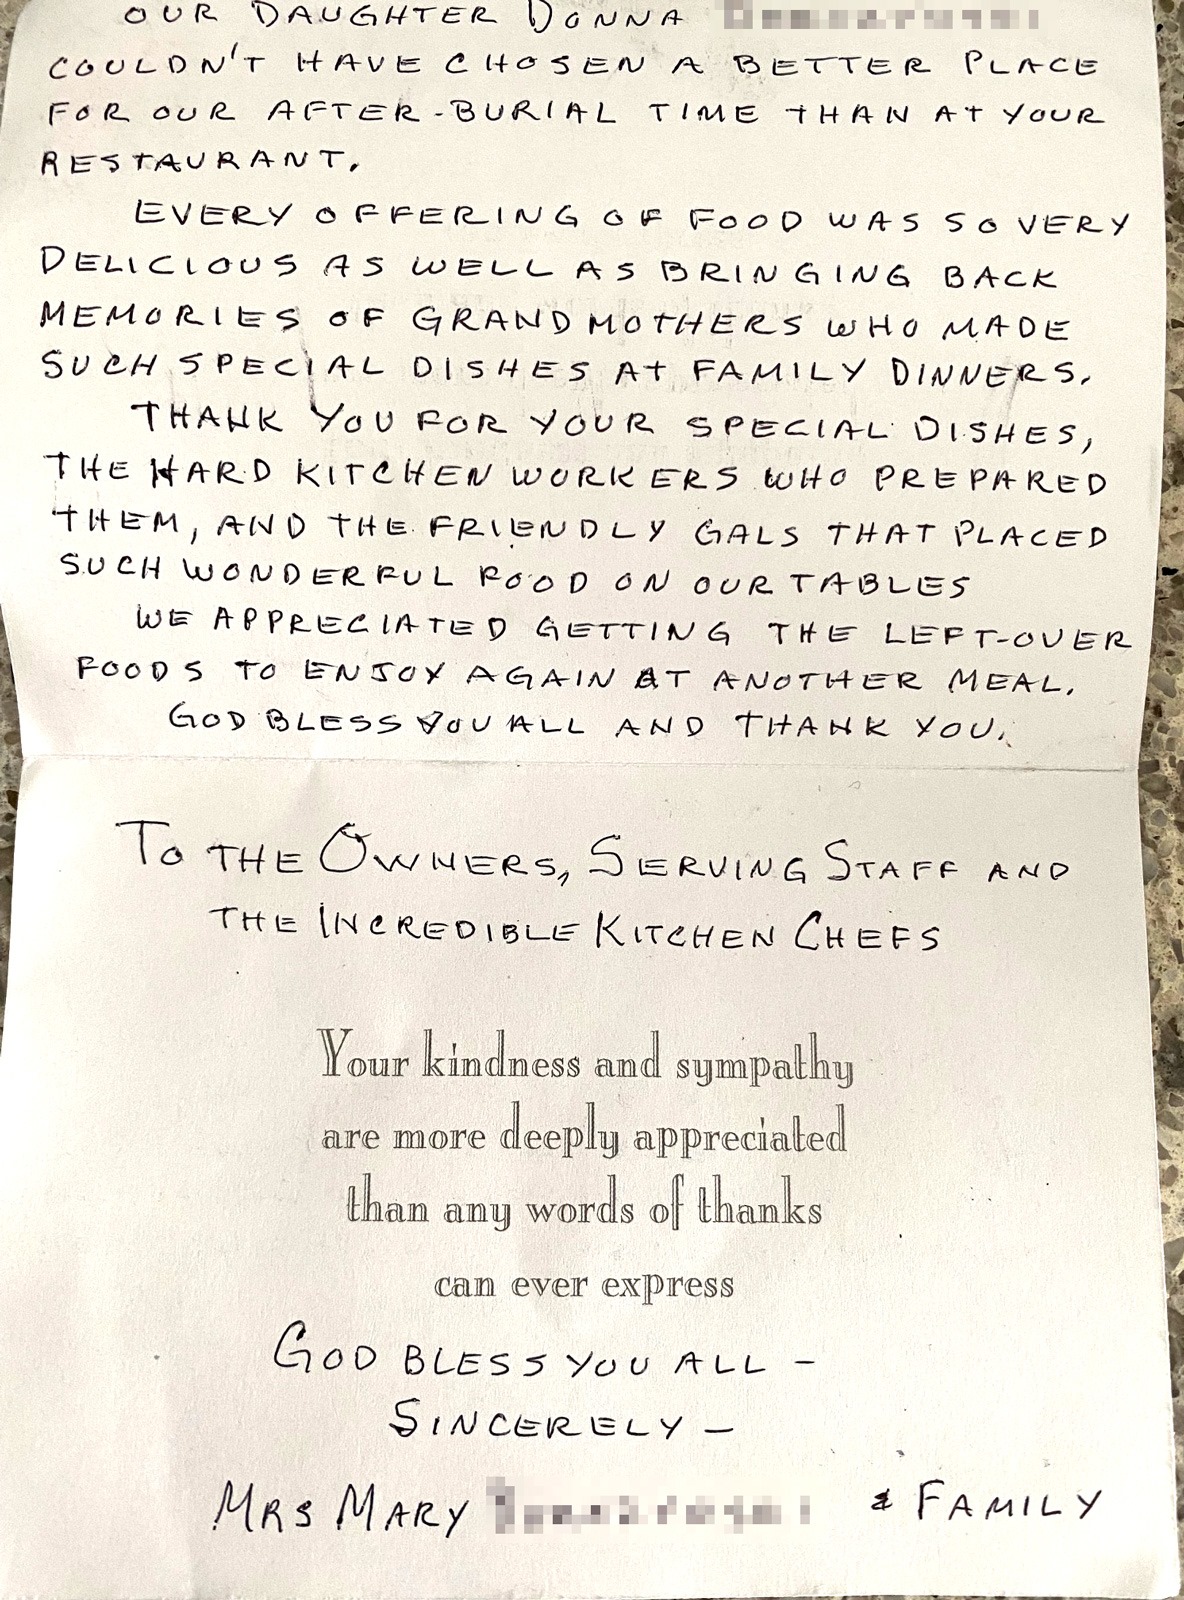 OUR DAUGHTER DONNA
COULDN'T HAVE CHOSEN A BETTER PLACE
FOR OUR AFTER-BURIAL TIME THAN AT YOUR
RESTAURANT.
EVERY OFFERING OF FOOD WAS SO VERY
DELICIOUS AS WELL AS BRINGING BACK
MEMORIES OF GRANDMOTHERS WHO MADE
SUCH SPECIAL DISHES AT FAMILY DINNERS.
THANK YOU FOR YOUR SPECIAL DISHES,
THE HARD KITCHEN WORKERS WHO PREPARED
THEM, AND THE FRIENDLY GALS THAT PLACED
SUCH WONDERFUL FOOD ON OUR TABLES
WE APPRECIATED GETTING THE LEFT-OVER
FOODS TO ENJOY AGAIN AT ANOTHER MEAL.
GOD BLESS YOU ALL AND THANK YOU.
TO THE OWNERS, SERVING STAFF AND
THE INCREDIBLE KITCHEN CHEFS
Your kindness and sympathy
are more deeply appreciated
than any words of thanks
can ever express
GOD BLESS YOU ALL -
SINCERELY -
MRS MARY & FAMILY